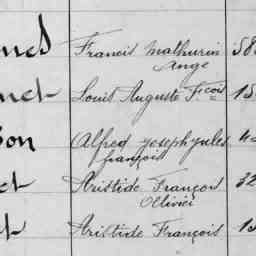 Francis Mathurin 58
Ange
Louis Auguste F.cois 15
Alfred Joseph Jules
françois
Aristide François 32
Olivier
Aristide François